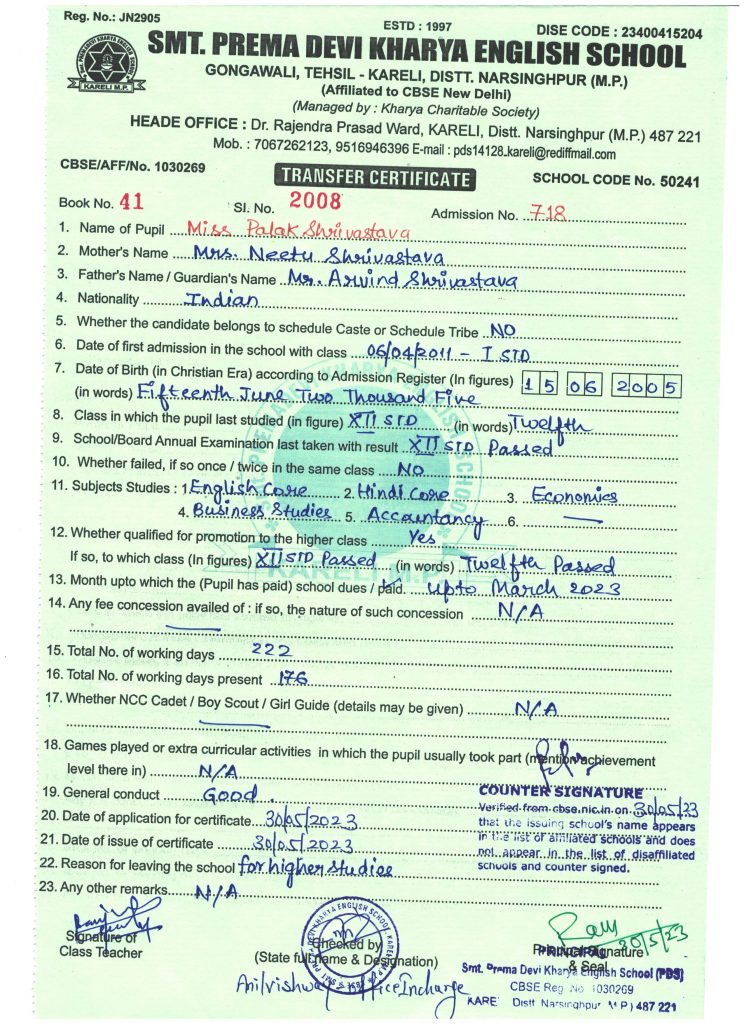 Reg. No.: JN2905
ESTD : 1997
DISE CODE : 23400415204
SMT. PREMA DEVI KHARYA ENGLISH SCHOOL
KARELI M.P.
GONGAWALI, TEHSIL - KARELI, DISTT. NARSINGHPUR (M.P.)
(Affiliated to CBSE New Delhi)
(Managed by : Kharya Charitable Society)
HEADE OFFICE : Dr. Rajendra Prasad Ward, KARELI, Distt. Narsinghpur (M.P.) 487 221
Mob. : 7067262123, 9516946396 E-mail : pds14128.kareli@rediffmail.com
CBSE/AFF/No. 1030269
TRANSFER CERTIFICATE
SCHOOL CODE No. 50241
Book No. 41 Sl. No. 2008 Admission No. 718
1. Name of Pupil Miss Palak Shrivastava
2. Mother's Name Mrs. Neetu Shrivastava
3. Father's Name / Guardian's Name Mr. Arvind Shrivastava
4. Nationality Indian
5. Whether the candidate belongs to schedule Caste or Schedule Tribe NO
6. Date of first admission in the school with class 06/04/2011 - I STD
7. Date of Birth (in Christian Era) according to Admission Register (In figures) 15 06 2005
(in words) Fifteenth June Two Thousand Five
8. Class in which the pupil last studied (in figure) XII STD (in words) Twelfth
9. School/Board Annual Examination last taken with result XII STD Passed
10. Whether failed, if so once / twice in the same class NO
11. Subjects Studies : 1 English Core 2. Hindi Core 3. Economics
4. Business Studies 5. Accountancy 6. —
12. Whether qualified for promotion to the higher class Yes
If so, to which class (In figures) XII STD Passed (in words) Twelfth Passed
13. Month upto which the (Pupil has paid) school dues / paid. upto March 2023
14. Any fee concession availed of : if so, the nature of such concession N/A
15. Total No. of working days 222
16. Total No. of working days present 176
17. Whether NCC Cadet / Boy Scout / Girl Guide (details may be given) N/A
18. Games played or extra curricular activities in which the pupil usually took part (mention achievement
level there in) N/A
19. General conduct Good.
20. Date of application for certificate 30/05/2023
21. Date of issue of certificate 30/05/2023
22. Reason for leaving the school for higher Studies
23. Any other remarks N/A
COUNTER SIGNATURE
Verified from cbse.nic.in on 30/05/23
that the issuing school's name appears
in the list of affiliated schools and does
not appear in the list of disaffiliated
schools and counter signed.
Signature of
Class Teacher
Checked by
(State full name & Designation)
Office Incharge
20/5/23
PRINCIPAL
Signature
& Seal
Smt. Prema Devi Kharya English School (PDS)
CBSE Reg No 1030269
Distt. Narsinghpur M.P.) 487 221